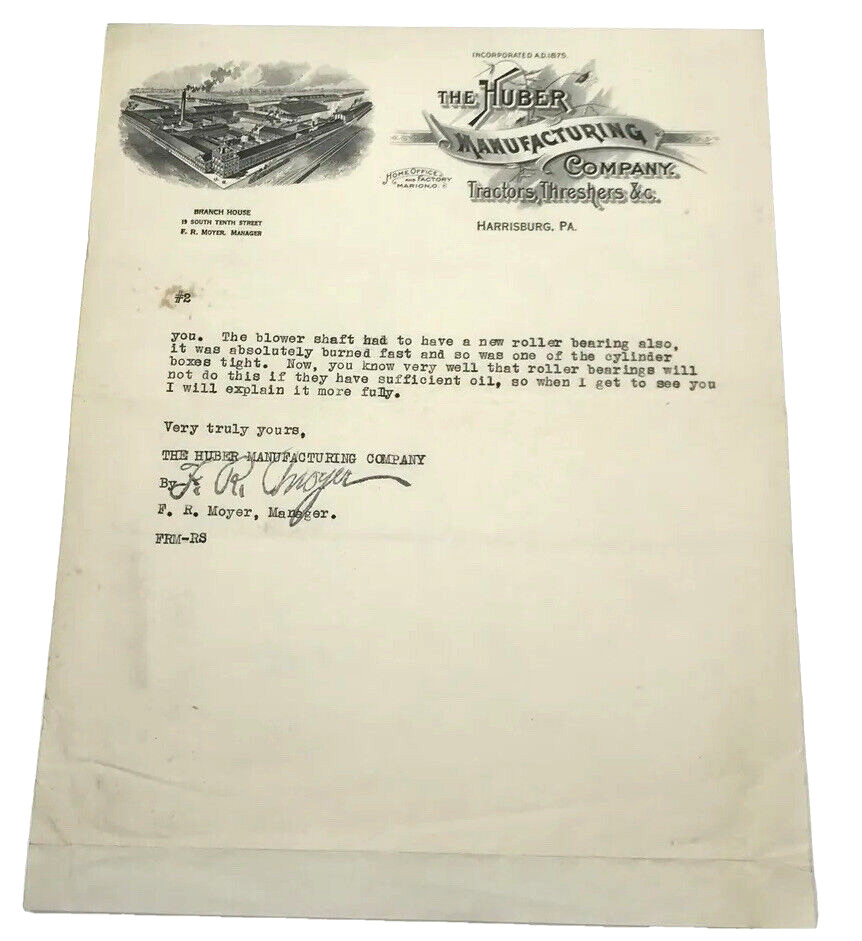 INCORPORATED A.D. 1875.
THE HUBER
MANUFACTURING
COMPANY.
HOME OFFICE
AND FACTORY
MARION, O.
Tractors, Threshers &c.
HARRISBURG, PA.
BRANCH HOUSE
19 SOUTH TENTH STREET
F. R. MOYER, MANAGER
#2
you. The blower shaft had to have a new roller bearing also,
it was absolutely burned fast and so was one of the cylinder
boxes tight. Now, you know very well that roller bearings will
not do this if they have sufficient oil, so when I get to see you
I will explain it more fully.
Very truly yours,
THE HUBER MANUFACTURING COMPANY
By F. R. Moyer
F. R. Moyer, Manager.
FRM-RS